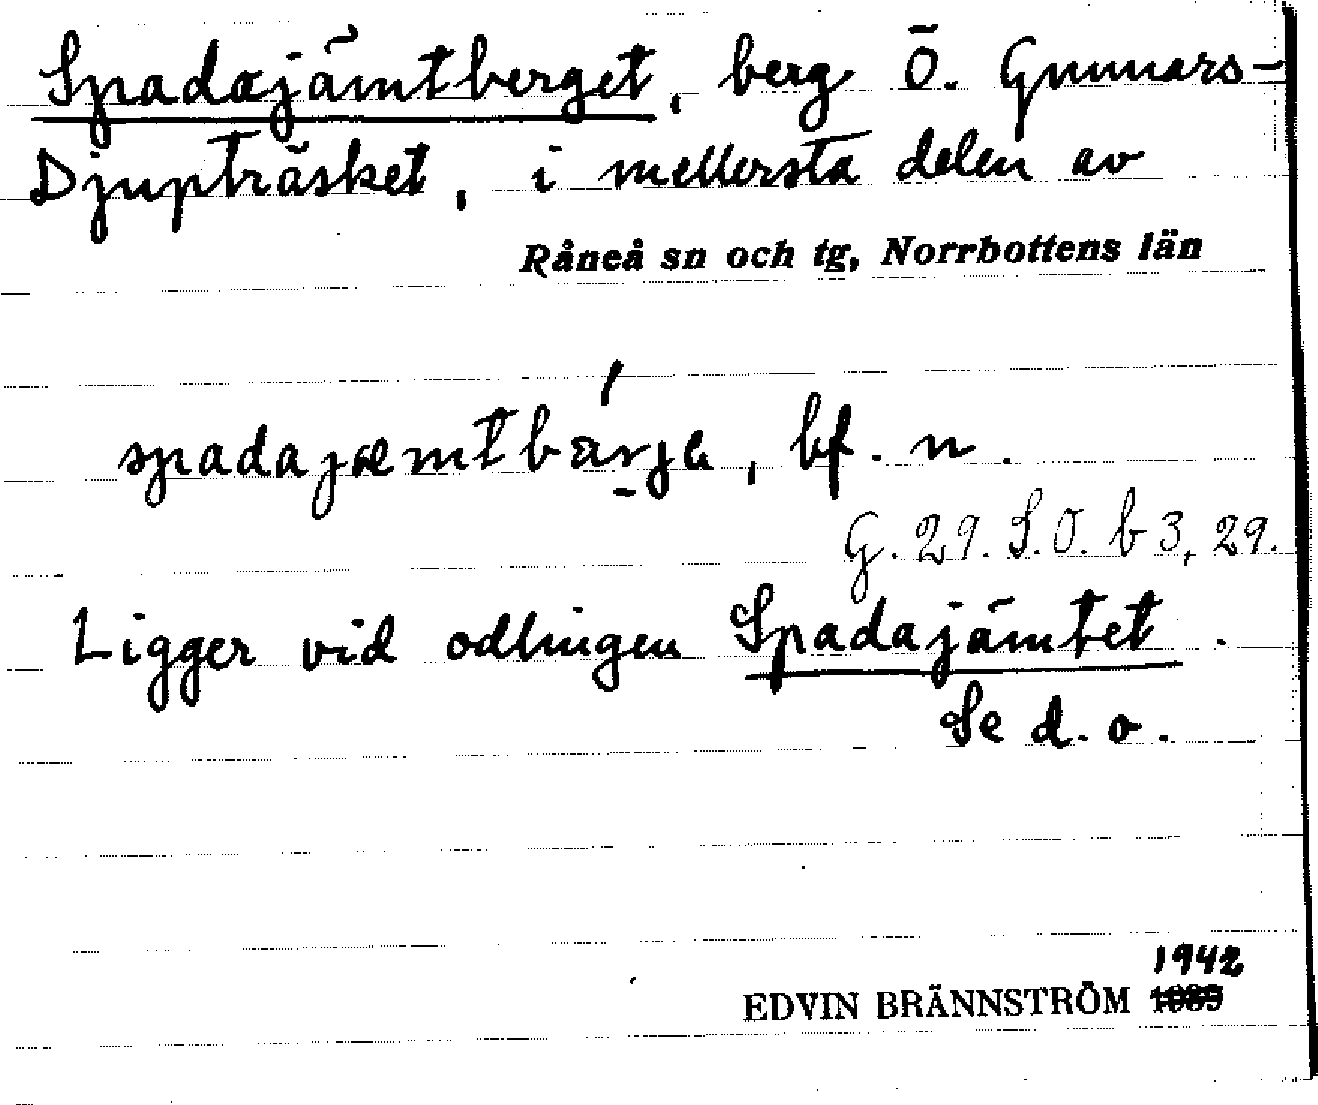 Spadajämtberget, berg Ö. Gunnars-
Djupträsket, i mellersta delen av
Råneå sn och tg, Norrbottens län
spadajæmtbärje, bf. n.
G. 29. S.O. b 3, 29.
Ligger vid odlingen Spadajämtet.
Se d. o.
1942
EDVIN BRÄNNSTRÖM 1939